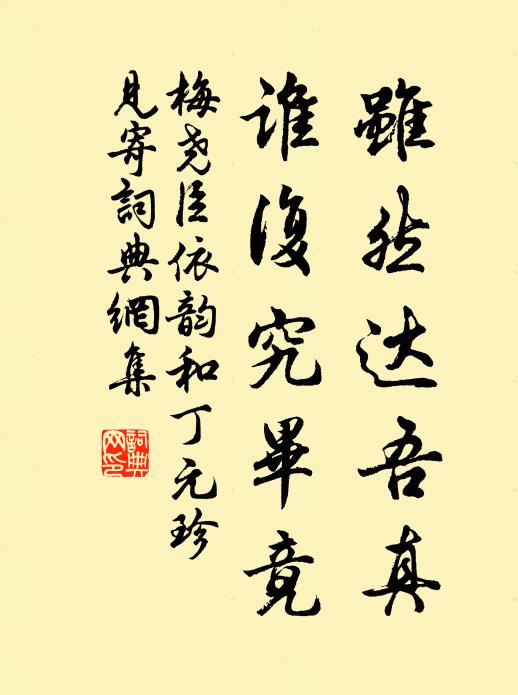 雖然达吾真
谁復究畢竟
梅尧臣依韵和丁元珍
見寄詞典網集
詞典网印